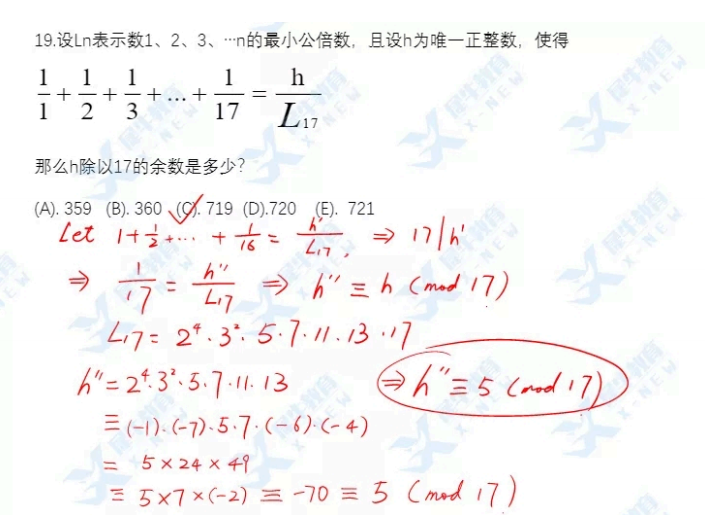 19.设Ln表示数1、2、3、…n的最小公倍数，且设h为唯一正整数，使得
1/1 + 1/2 + 1/3 + ... + 1/17 = h/L₁₇
那么h除以17的余数是多少?
(A). 359 (B). 360 (C). 719 (D).720 (E). 721
Let 1+1/2+... + 1/16 = h'/L₁₇, ⇒ 17|h'
⇒ 1/17 = h''/L₁₇ ⇒ h'' ≡ h (mod 17)
L₁₇ = 2⁴·3²·5·7·11·13·17
h'' = 2⁴·3²·5·7·11·13 ⇒ h'' ≡ 5 (mod 17)
≡ (-1)·(-7)·5·7·(-6)·(-4)
= 5×24×49
≡ 5×7×(-2) ≡ -70 ≡ 5 (mod 17)
犀牛教育
X-NEW